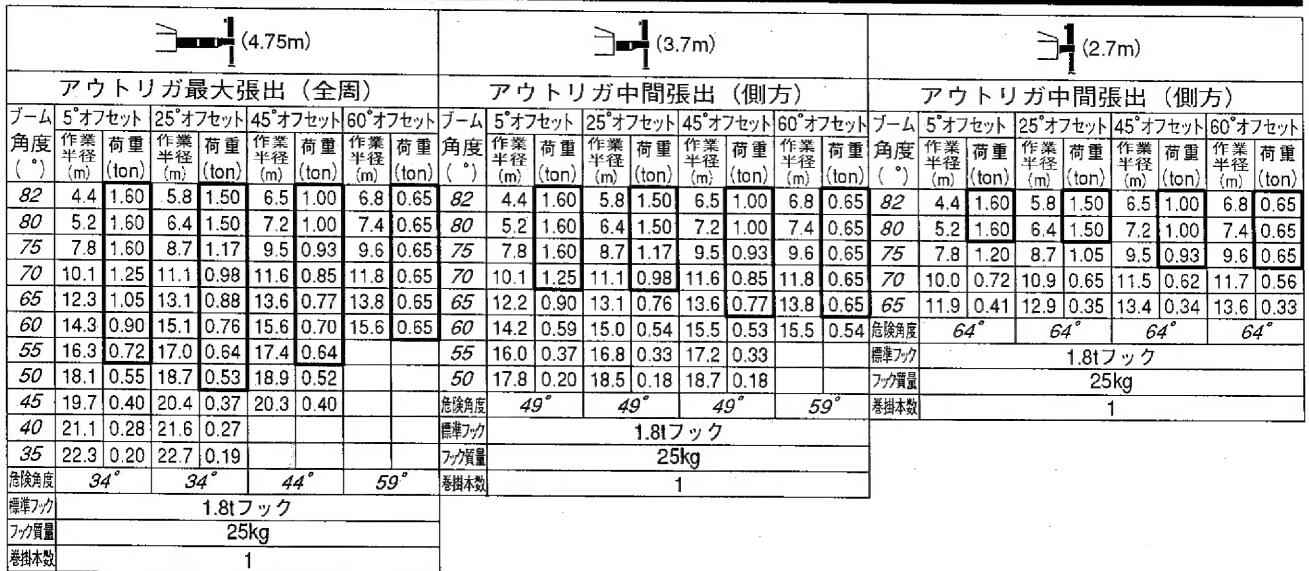 (4.75m)
アウトリガ最大張出（全周）
ブーム角度(°) 5°オフセット 25°オフセット 45°オフセット 60°オフセット
作業半径(m) 荷重(ton) 作業半径(m) 荷重(ton) 作業半径(m) 荷重(ton) 作業半径(m) 荷重(ton)
82 4.4 1.60 5.8 1.50 6.5 1.00 6.8 0.65
80 5.2 1.60 6.4 1.50 7.2 1.00 7.4 0.65
75 7.8 1.60 8.7 1.17 9.5 0.93 9.6 0.65
70 10.1 1.25 11.1 0.98 11.6 0.85 11.8 0.65
65 12.3 1.05 13.1 0.88 13.6 0.77 13.8 0.65
60 14.3 0.90 15.1 0.76 15.6 0.70 15.6 0.65
55 16.3 0.72 17.0 0.64 17.4 0.64
50 18.1 0.55 18.7 0.53 18.9 0.52
45 19.7 0.40 20.4 0.37 20.3 0.40
40 21.1 0.28 21.6 0.27
35 22.3 0.20 22.7 0.19
危険角度 34° 34° 44° 59°
標準フック 1.8tフック
フック質量 25kg
巻掛本数 1
(3.7m)
アウトリガ中間張出（側方）
ブーム角度(°) 5°オフセット 25°オフセット 45°オフセット 60°オフセット
作業半径(m) 荷重(ton) 作業半径(m) 荷重(ton) 作業半径(m) 荷重(ton) 作業半径(m) 荷重(ton)
82 4.4 1.60 5.8 1.50 6.5 1.00 6.8 0.65
80 5.2 1.60 6.4 1.50 7.2 1.00 7.4 0.65
75 7.8 1.60 8.7 1.17 9.5 0.93 9.6 0.65
70 10.1 1.25 11.1 0.98 11.6 0.85 11.8 0.65
65 12.2 0.90 13.1 0.76 13.6 0.77 13.8 0.65
60 14.2 0.59 15.0 0.54 15.5 0.53 15.5 0.54
55 16.0 0.37 16.8 0.33 17.2 0.33
50 17.8 0.20 18.5 0.18 18.7 0.18
危険角度 49° 49° 49° 59°
標準フック 1.8tフック
フック質量 25kg
巻掛本数 1
(2.7m)
アウトリガ中間張出（側方）
ブーム角度(°) 5°オフセット 25°オフセット 45°オフセット 60°オフセット
作業半径(m) 荷重(ton) 作業半径(m) 荷重(ton) 作業半径(m) 荷重(ton) 作業半径(m) 荷重(ton)
82 4.4 1.60 5.8 1.50 6.5 1.00 6.8 0.65
80 5.2 1.60 6.4 1.50 7.2 1.00 7.4 0.65
75 7.8 1.20 8.7 1.05 9.5 0.93 9.6 0.65
70 10.0 0.72 10.9 0.65 11.5 0.62 11.7 0.56
65 11.9 0.41 12.9 0.35 13.4 0.34 13.6 0.33
危険角度 64° 64° 64° 64°
標準フック 1.8tフック
フック質量 25kg
巻掛本数 1